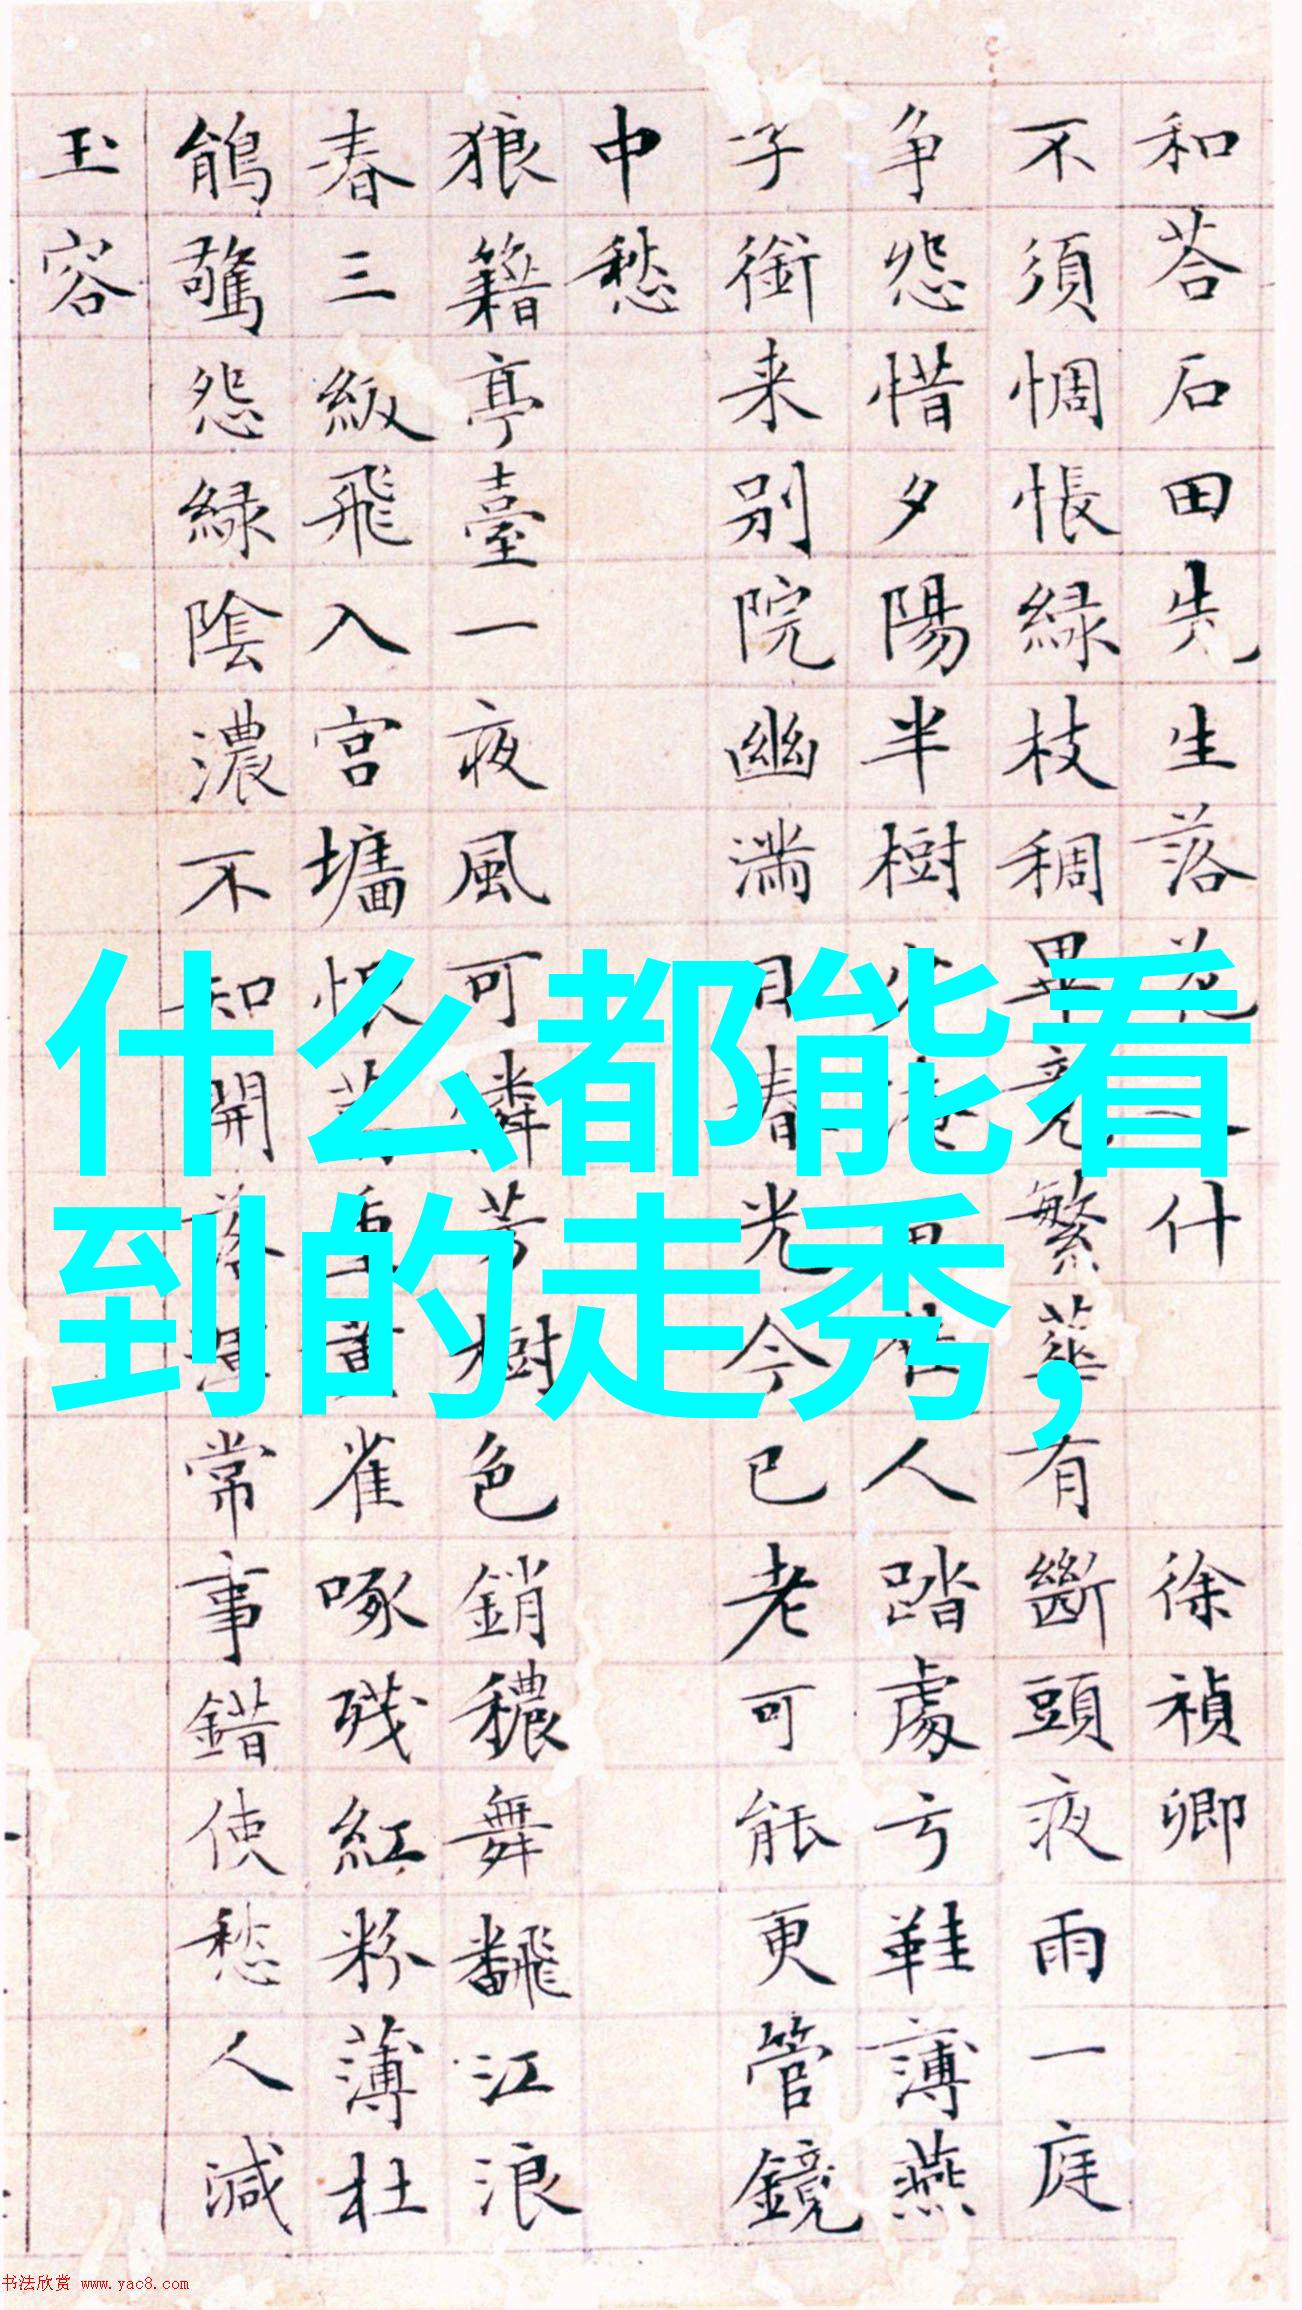 和荅石田先生落花之什 徐禎卿
不須惆悵綠枝稠畢竟繁華有斷頭夜雨一庭
争怨惜夕陽半樹少淹留佳人踏處弓鞋薄燕
子銜来别院幽滿目春光今已老可能更管鏡
中愁
狼籍亭臺一夜風可憐芳樹色銷穠舞飜江浪
春三級飛入宮墻恨萬重黄雀啄残紅粉薄杜
鵑驚怨綠陰濃不知開落尋常事錯使愁人減
玉容
什么都能看
到的走秀,
书法欣赏 www.yac8.com